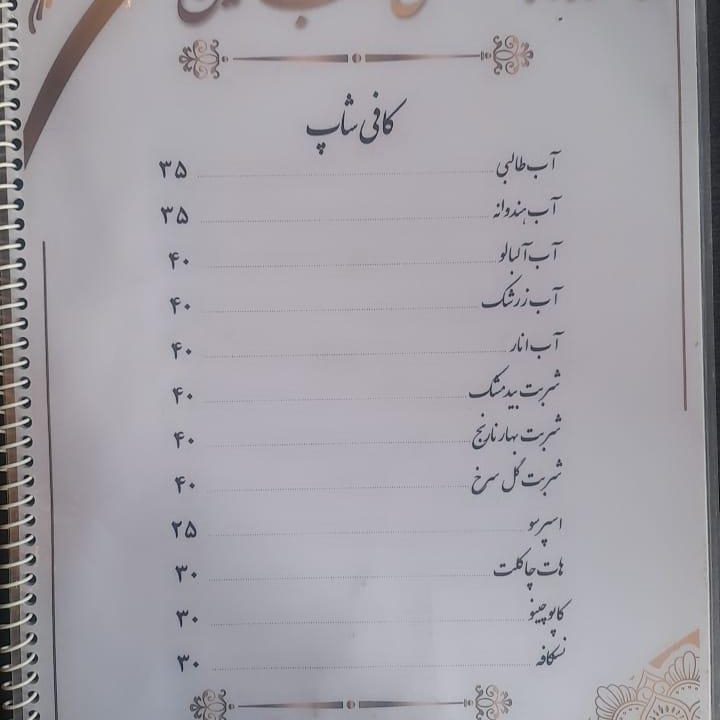 کافی شاپ
آب طالبی ۳۵
آب هندوانه ۳۵
آب آلبالو ۴۰
آب زرشک ۴۰
آب انار ۴۰
شربت بیدمشک ۴۰
شربت بهار نارنج ۴۰
شربت گل سرخ ۴۰
اسپرسو ۲۵
هات چاکلت ۳۰
کاپوچینو ۳۰
نسکافه ۳۰